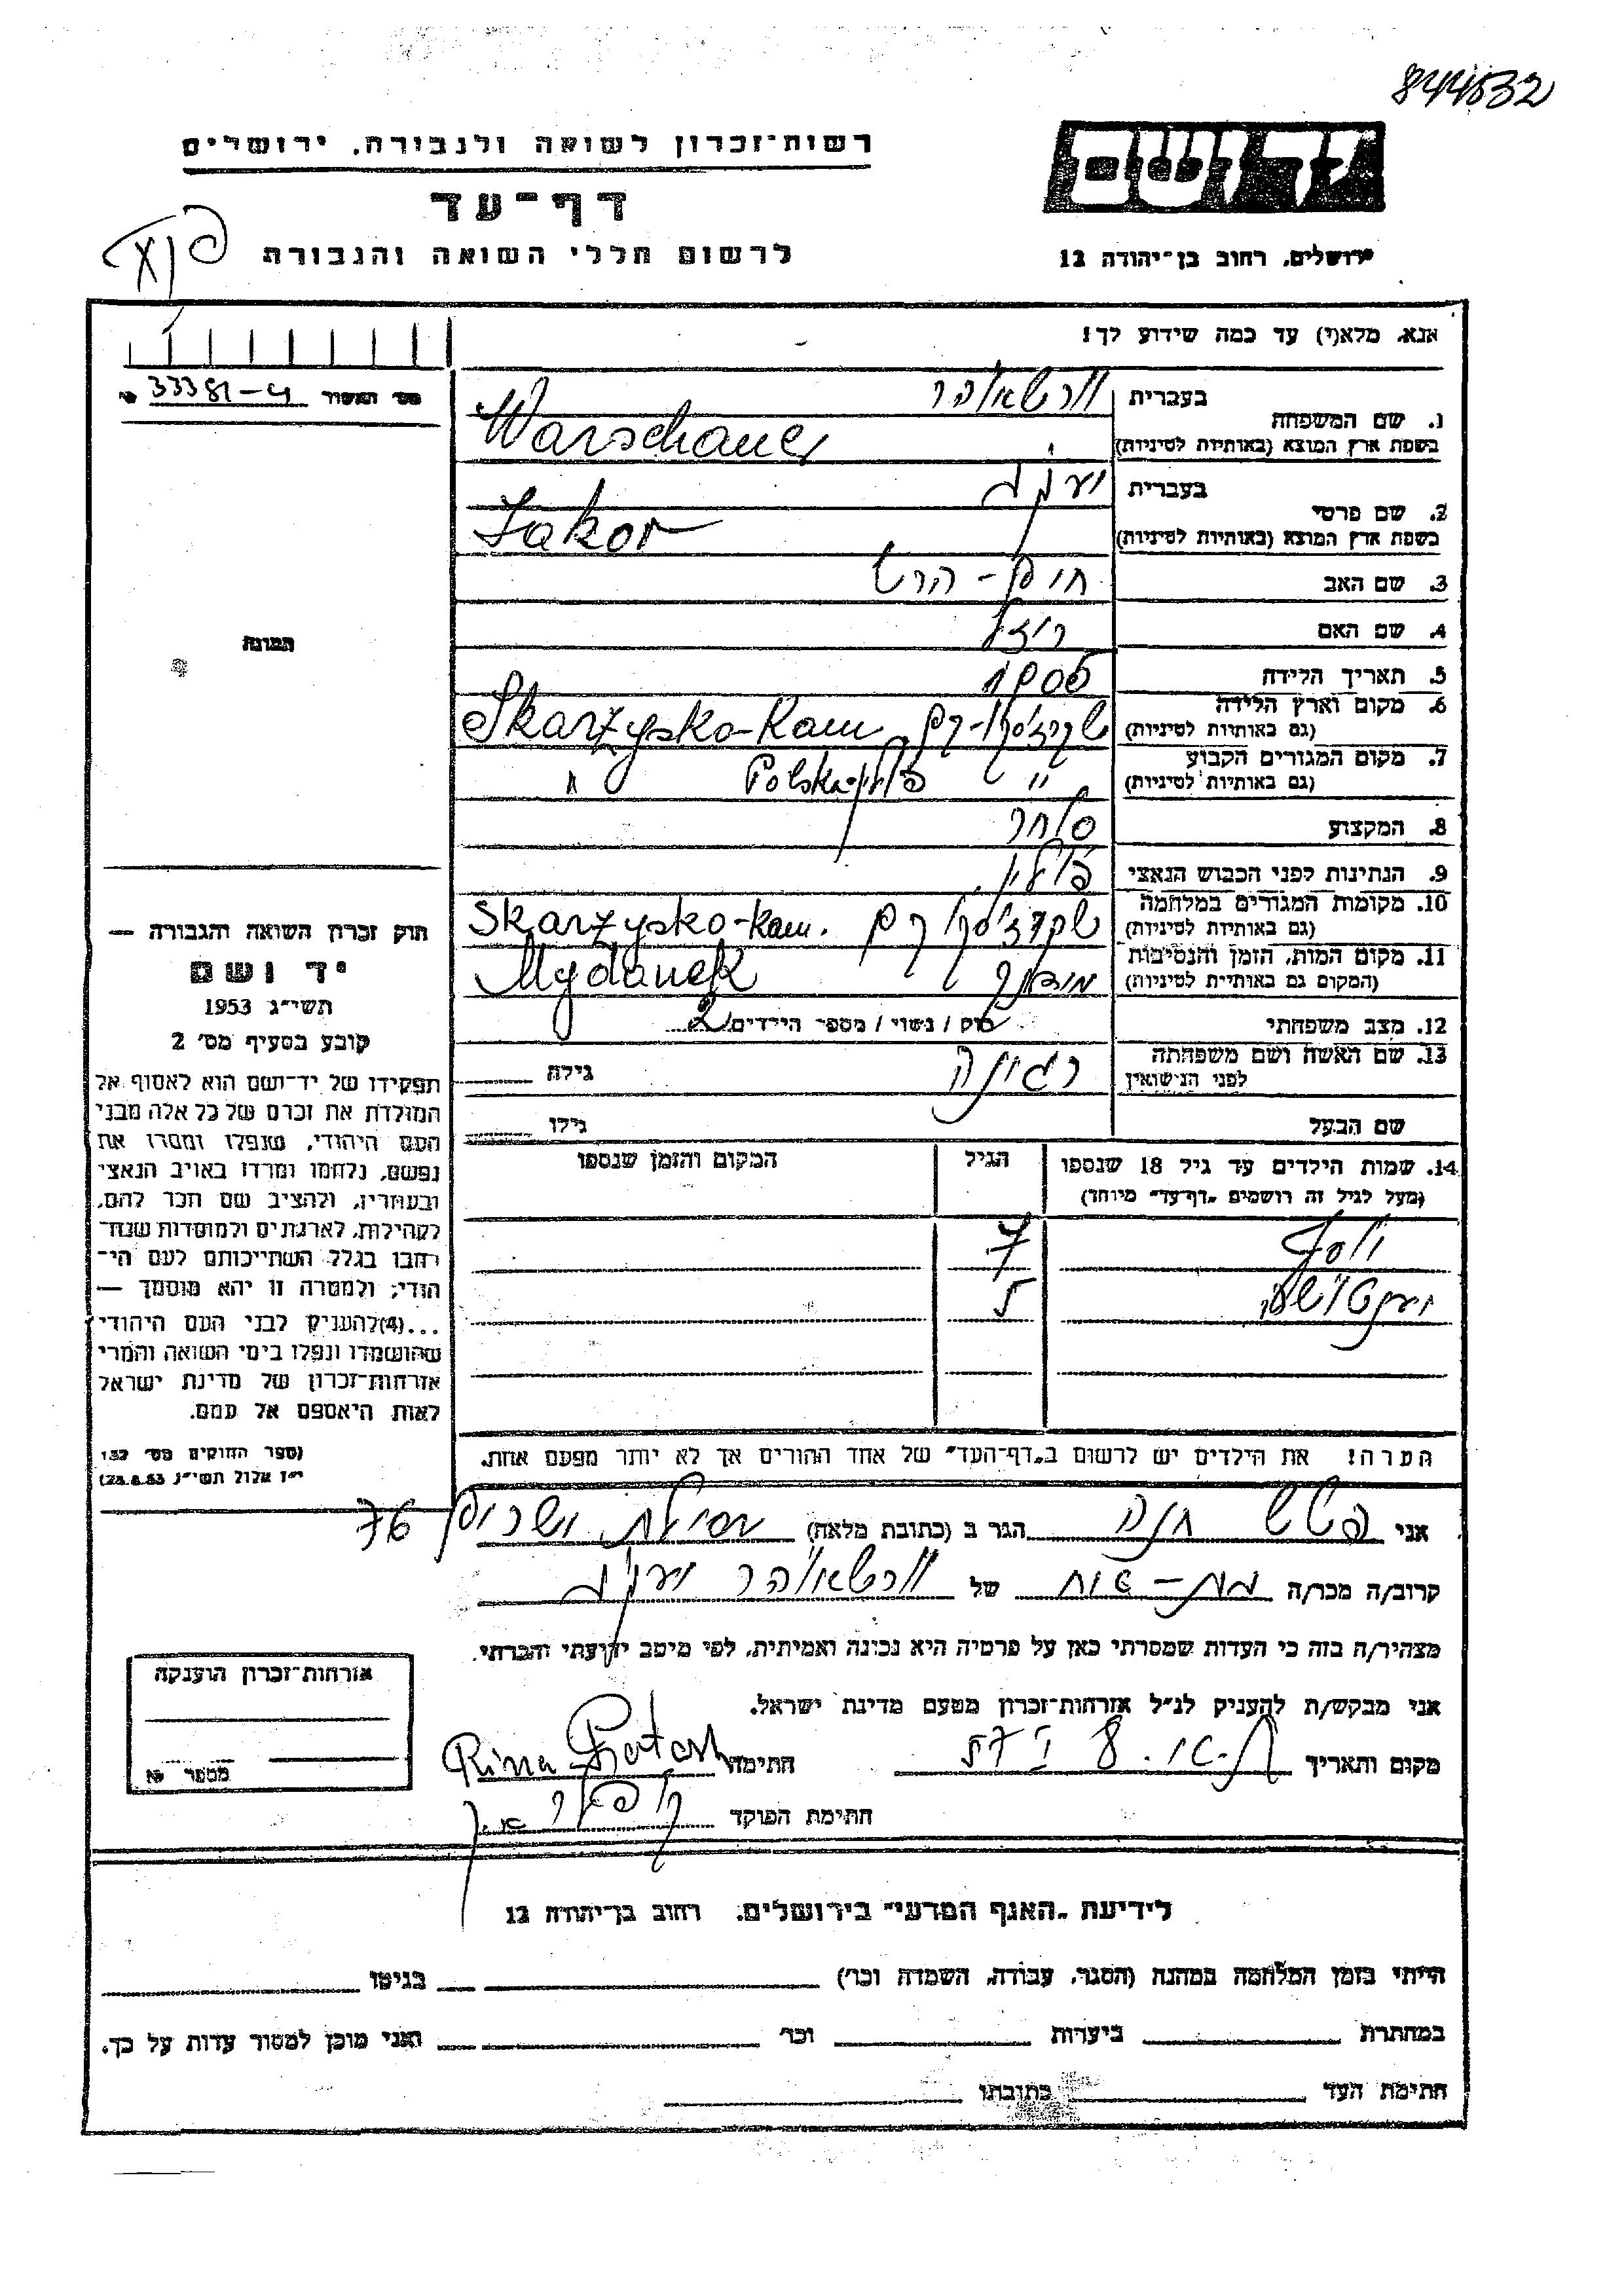 844532
יד ושם
רשות־זכרון לשואה ולגבורה, ירושלים
דף־עד
לרשום חללי השואה והגבורה
ירושלים, רחוב בן־יהודה 12
אנא, מלא(י) עד כמה שידוע לך!
מס' האשור № 33381-ש
1. שם המשפחה בעברית
בשפת ארץ המוצא (באותיות לטיניות) Warschauer
2. שם פרטי בעברית יעקב
בשפת ארץ המוצא (באותיות לטיניות) Jakov
3. שם האב חיים - הרש
4. שם האם רייזל
5. תאריך הלידה
6. מקום וארץ הלידה
(גם באותיות לטיניות) Skarzysko-Kam
7. מקום המגורים הקבוע
(גם באותיות לטיניות) " פולין Polska "
8. המקצוע סוחר
9. הנתינות לפני הכבוש הנאצי פולין
10. מקומות המגורים במלחמה
(גם באותיות לטיניות) Skarzysko-Kam.
11. מקום המות, הזמן והנסיבות
(המקום גם באותיות לטיניות) Mydanek
12. מצב משפחתי רווק / נשוי / מספר הילדים 2
13. שם האשה ושם משפחתה
לפני הנישואין רגינה גילה
שם הבעל גילו
14. שמות הילדים עד גיל 18 שנספו הגיל המקום והזמן שנספו
(מעל לגיל זה רושמים "דף־עד" מיוחד)
יוסף 7
5
הערה! את הילדים יש לרשום ב"דף־העד" של אחד ההורים אך לא יותר מפעם אחת.
התמונה
חוק זכרון השואה והגבורה —
יד ושם
תשי"ג 1953
קובע בסעיף מס' 2
תפקידו של יד־ושם הוא לאסוף אל
המולדת את זכרם של כל אלה מבני
העם היהודי, שנפלו ומסרו את
נפשם, נלחמו ומרדו באויב הנאצי
ובעוזריו, ולהציב שם וזכר להם,
לקהילות, לארגונים ולמוסדות שנח־
רבו בגלל השתייכותם לעם הי־
הודי; ולמטרה זו יהא מוסמך —
...(4) להעניק לבני העם היהודי
שהושמדו ונפלו בימי השואה והמרי
אזרחות־זכרון של מדינת ישראל
לאות היאספם אל עמם.
(ספר החוקים מס' 132
י"ז אלול תשי"ג 28.8.53)
אני חנה הגר ב (כתובת מלאה) 76
קרוב/ה מכר/ה בת-דוד של יעקב
מצהיר/ה בזה כי העדות שמסרתי כאן על פרטיה היא נכונה ואמיתית, לפי מיטב ידיעתי והכרתי.
אני מבקש/ת להעניק לנ"ל אזרחות־זכרון מטעם מדינת ישראל.
מקום ותאריך חתימה Rina
חתימת הפוקד
אזרחות־זכרון הוענקה
מספר №
לידיעת "האגף המדעי" בירושלים, רחוב בן־יהודה 12
הייתי בזמן המלחמה במחנה (הסגר, עבודה, השמדה וכו') בגיטו
במחתרת ביערות וכו' ואני מוכן למסור עדות על כך.
חתימת העד כתובתו